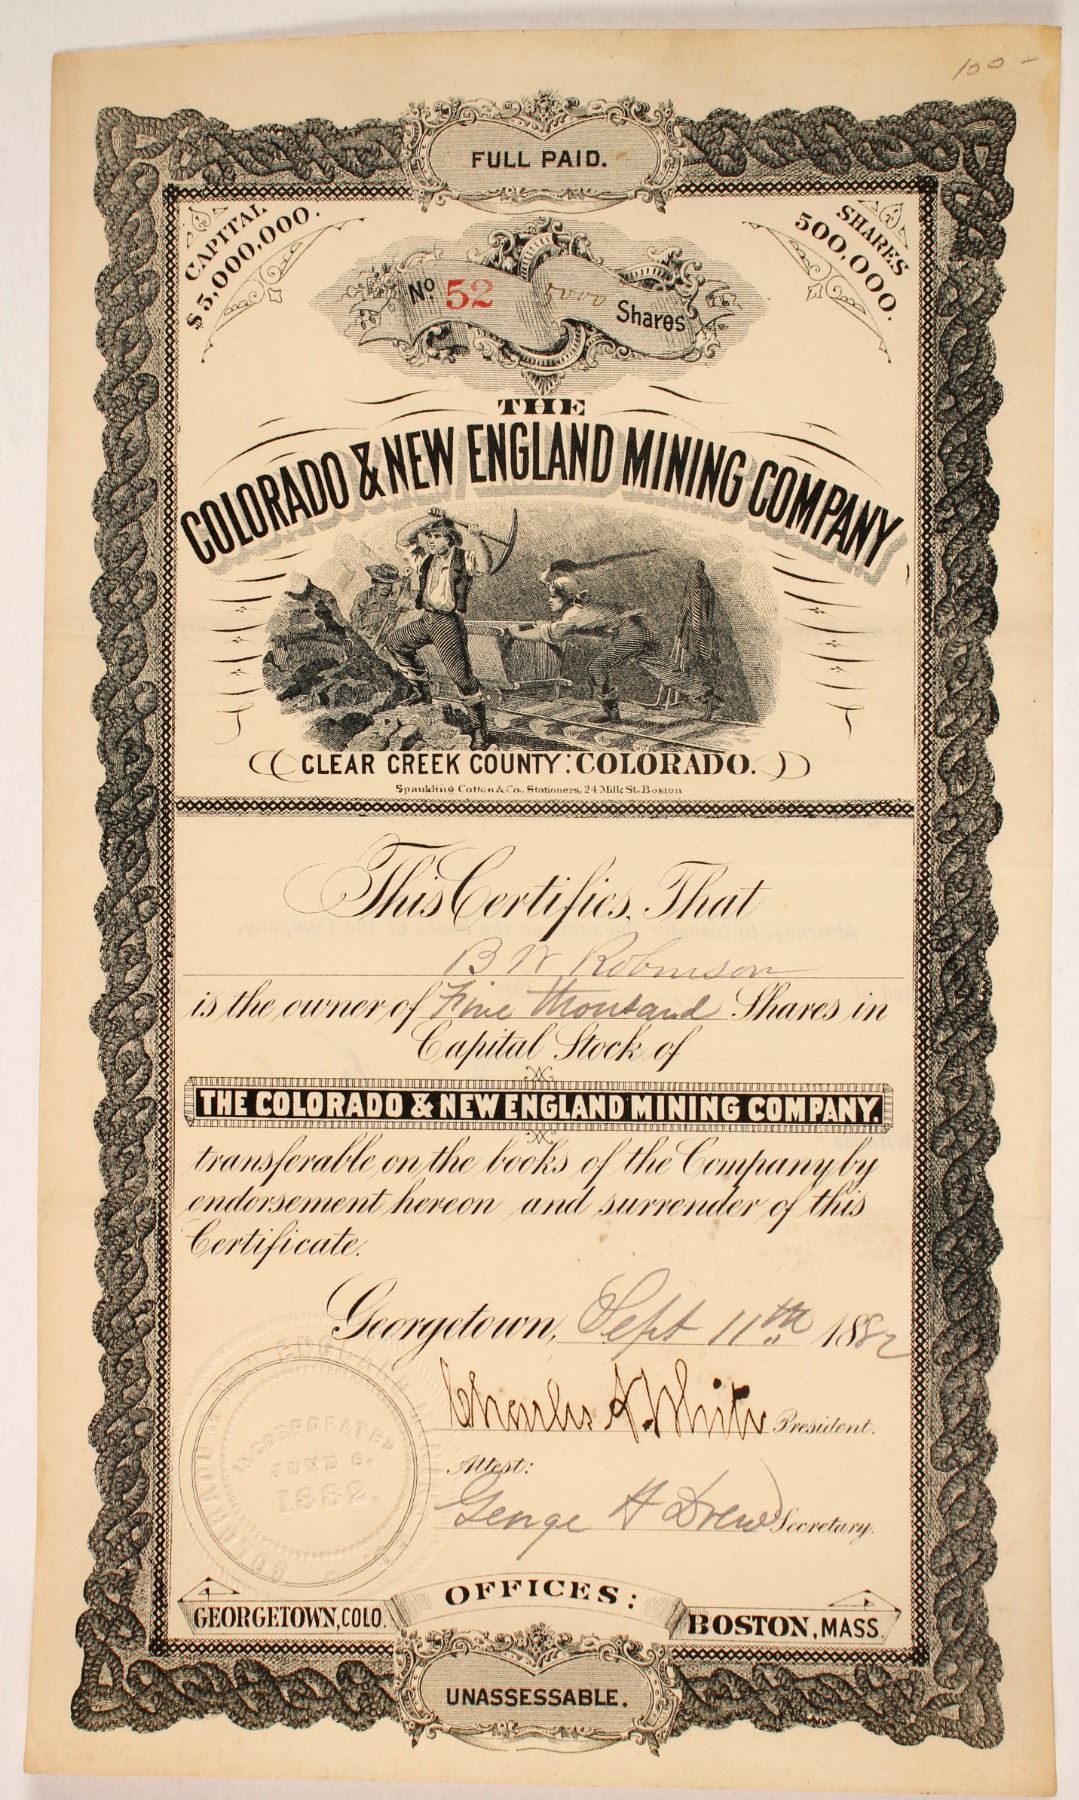 100-
FULL PAID.
CAPITAL
$5,000,000.
SHARES
500,000.
No. 52
5000 Shares
THE
COLORADO & NEW ENGLAND MINING COMPANY
CLEAR CREEK COUNTY: COLORADO.
Spaulding Cotton & Co., Stationers, 24 Milk St. Boston
This Certifies, That
B W Robinson
is the owner of Five thousand Shares in
Capital Stock of
THE COLORADO & NEW ENGLAND MINING COMPANY.
transferable on the books of the Company by
endorsement hereon and surrender of this
Certificate.
Georgetown, Sept 11th 1882
Charles A. White President.
Attest:
George H Drew Secretary.
COLORADO & NEW ENGLAND MINING CO
INCORPORATED
JUNE 6,
1882.
OFFICES:
GEORGETOWN, COLO.
BOSTON, MASS.
UNASSESSABLE.